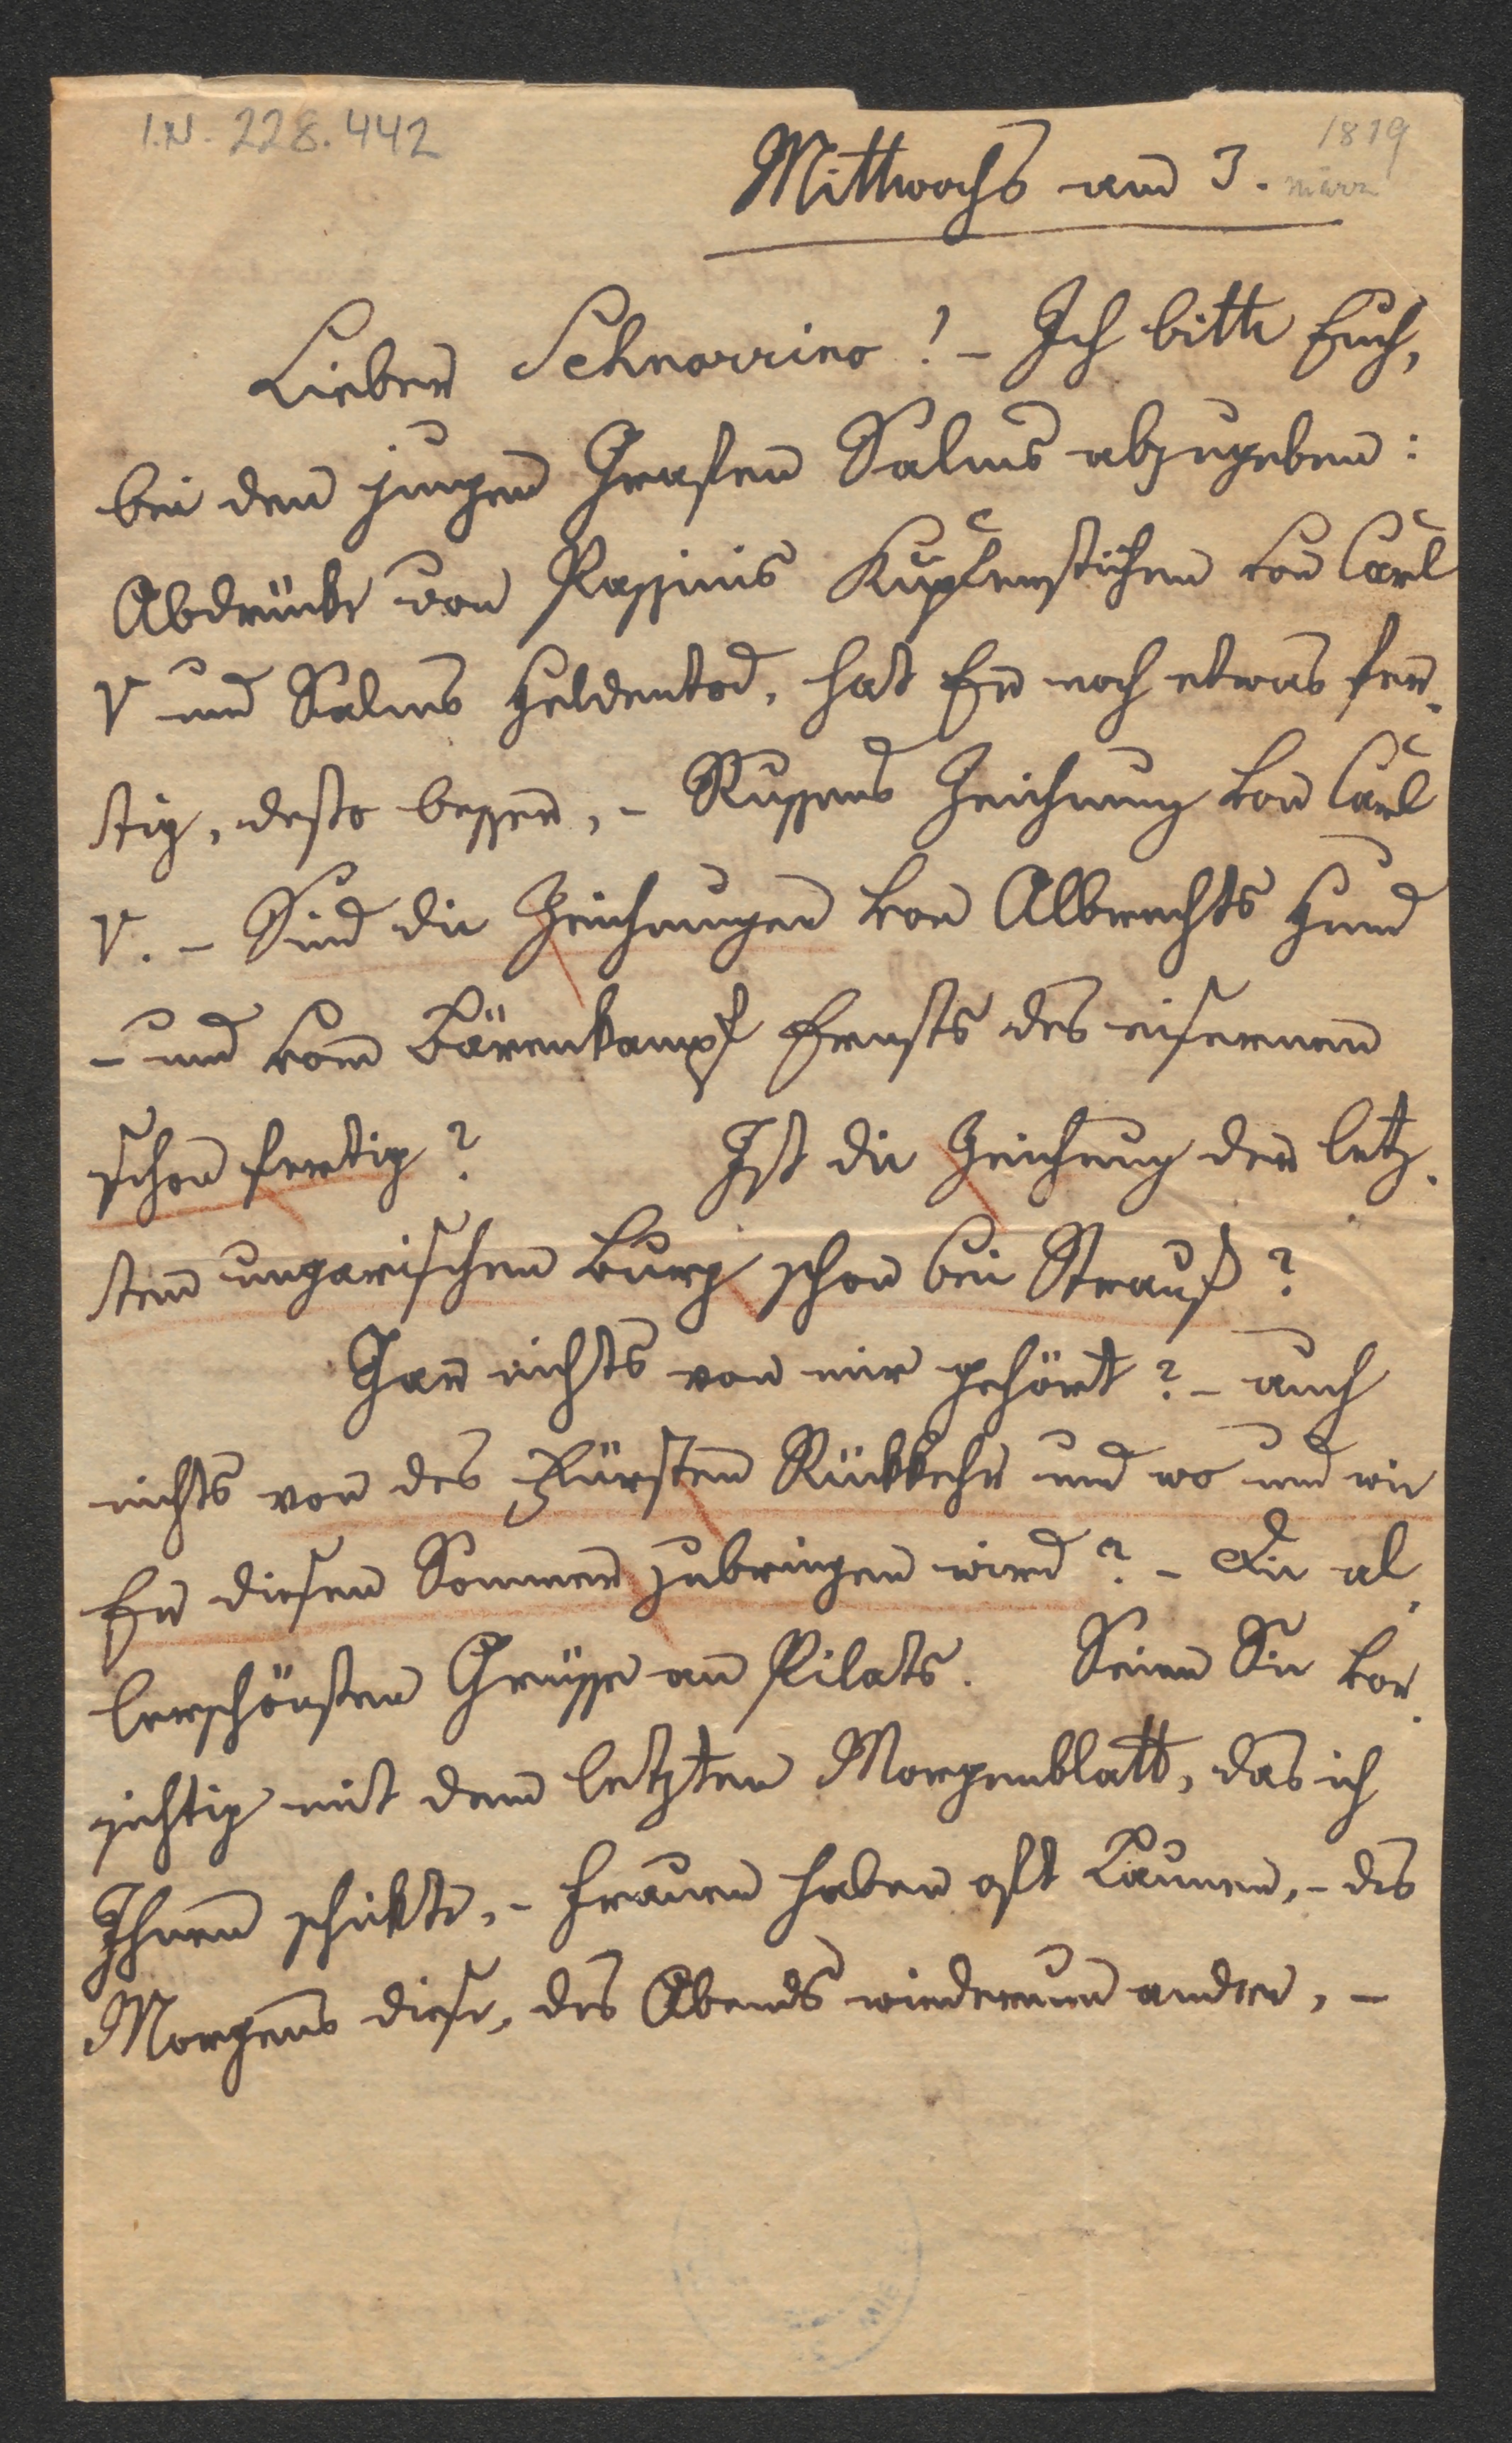 I.N. 228.442
1819
Mittwochs am 3. März
Lieber Schnorrino! – Ich bitte Euch,
bei dem jungen Grafen Salms abzugeben:
Abdrücke von Passinis Kupferstichen von Carl
V und Salms Heldentod, hat Er noch etwas fer-
tig, desto besser, – Russens Zeichnung von Carl
V. – Sind die Zeichnungen von Albrechts Hund
– und vom Bärenkampf Ernsts des eisernen
schon fertig? Ist die Zeichnung der letz-
ten ungarischen Burg schon bei Strauß?
Gar nichts von mir gehört? – auch
nichts von des Fürsten Rückkehr und wo und wie
Er diesen Sommer zubringen wird? – Die al-
lerschönsten Grüsse an Pilats. Seien Sie vor-
sichtig mit dem letzten Morgenblatt, das ich
Ihnen schickte, – Frauen haben oft Launen, – des
Morgens diese, des Abends wiederum andere, –